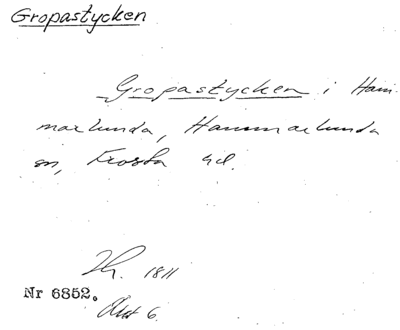 Gropastycken
Gropastycken i Ham-
marlunda, Hammarlunda
sn, Frosta hd.
1811
Nr 6852.
Akt 6